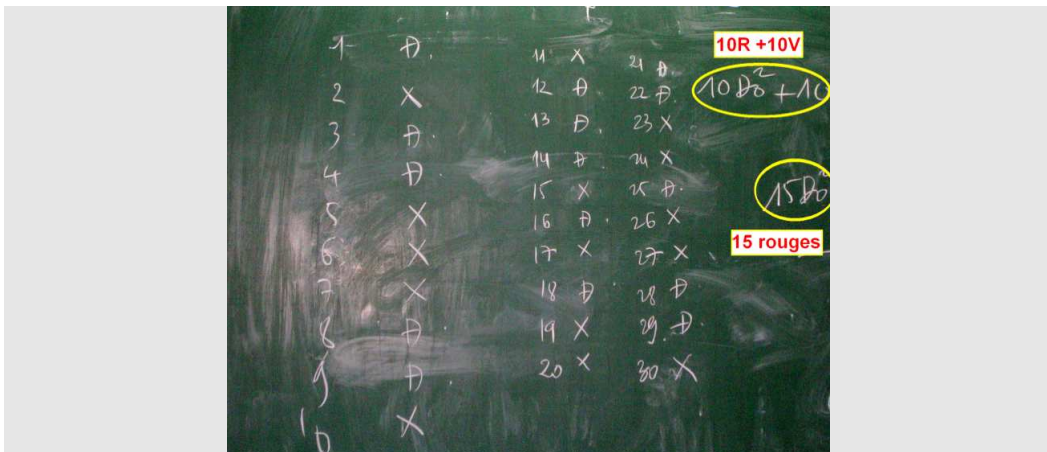 1 Đ.
2 X
3 Đ.
4 Đ.
5 X
6 X
7 X
8 Đ
9 Đ.
10 X
11 X
12 Đ
13 Đ.
14 Đ.
15 X
16 Đ.
17 X
18 Đ
19 X
20 X
21 Đ.
22 Đ.
23 X
24 X
25 Đ.
26 X
27 X
28 Đ
29. Đ.
30 X
10R +10V
10Đỏ + 10
15Đỏ
15 rouges